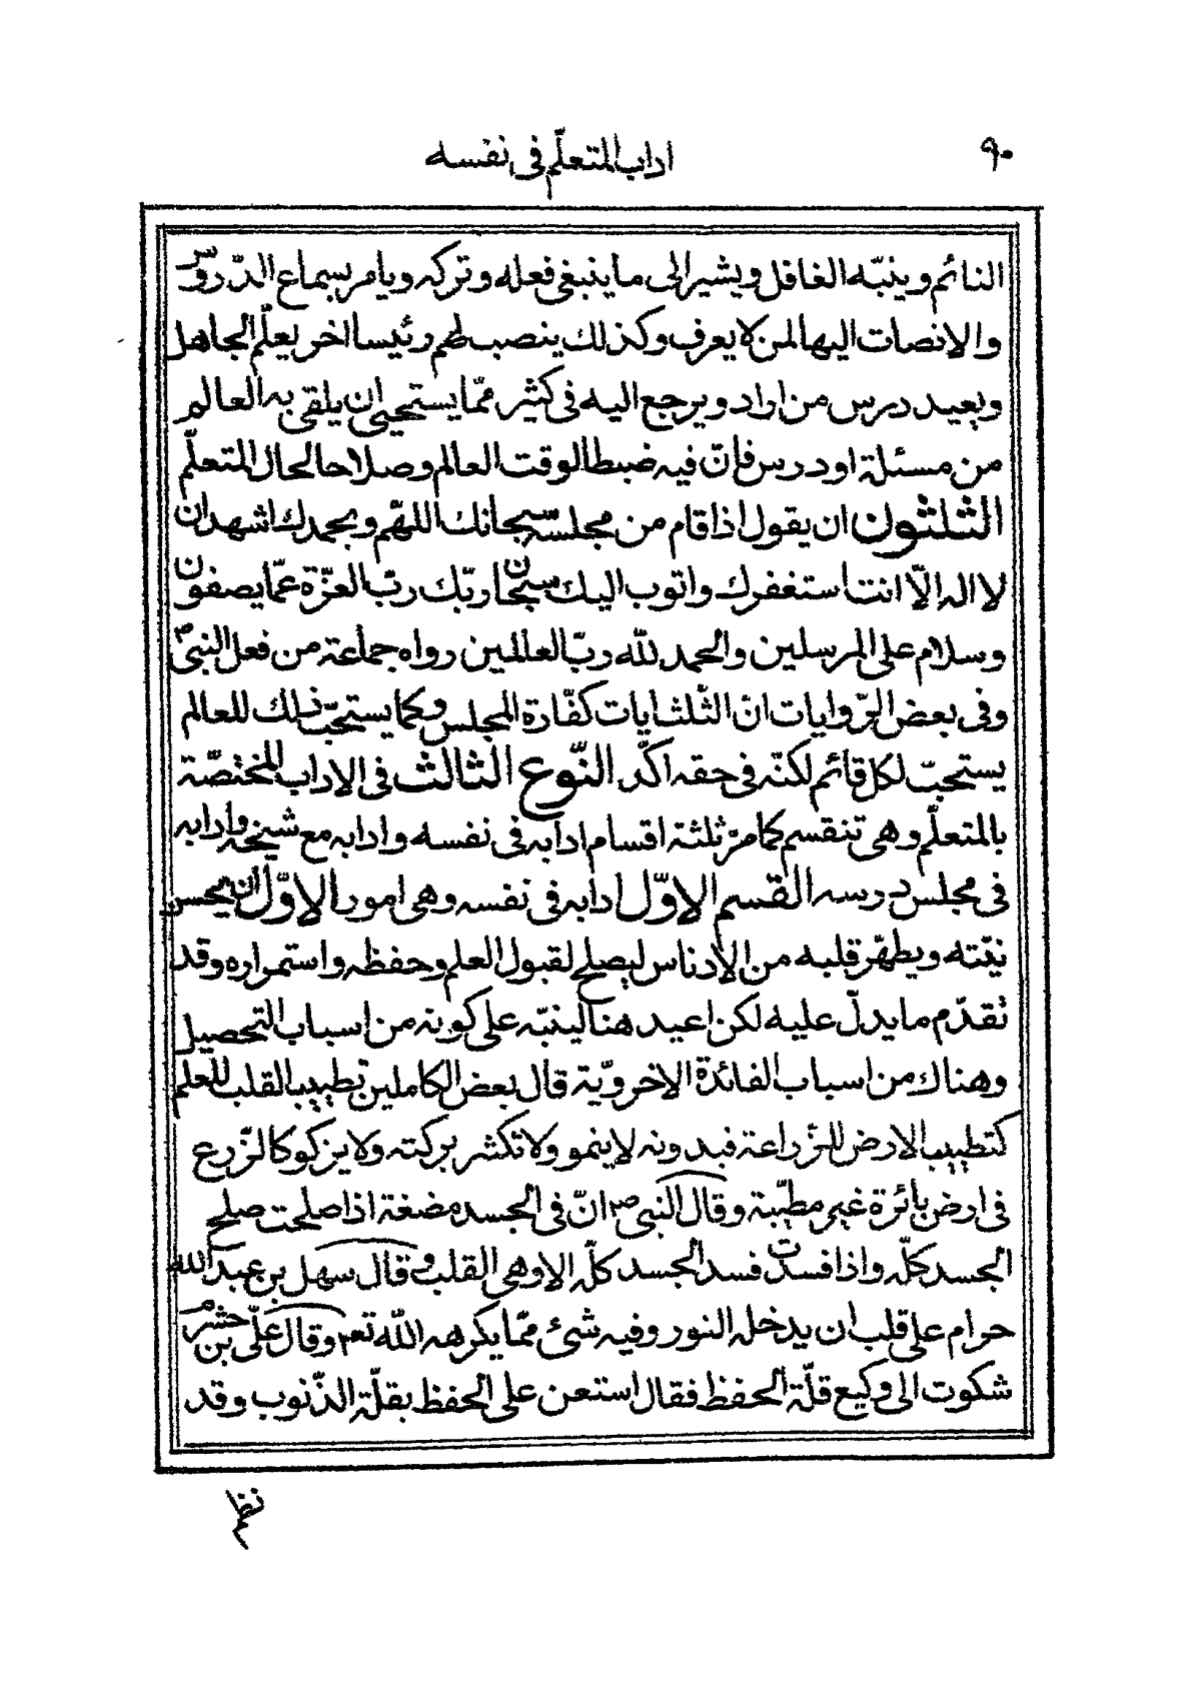 ٩٠
اداب المتعلّم فى نفسه
النائم وينبّه الغافل ويشير الى ما ينبغى فعله وتركه ويامر بسماع الدّروس
والانصات اليها لمن لا يعرف وكذلك ينصب لهم رئيسا اخر يعلّم الجاهل
ويعيد درس من اراد ويرجع اليه فى كثير ممّا يستحيى ان يلقى به العالم
من مسئلة او درس فانّ فيه ضبطا لوقت العالم وصلاحا لحال المتعلّم
الثلثون ان يقول اذا قام من مجلسه سبحانك اللهمّ وبحمدك اشهد ان
لا اله الّا انت استغفرك واتوب اليك سبحان ربّك ربّ العزّة عمّا يصفون
وسلام على المرسلين والحمد للّه ربّ العالمين رواه جماعة من فعل النبىّ ص
وفى بعض الرّوايات انّ الثّلث ايات كفّارة المجلس وكما يستحبّ ذلك للعالم
يستحبّ لكل قائم لكنّه فى حقه اكد النّوع الثالث فى الاداب المختصّة
بالمتعلّم وهى تنقسم كما مرّ ثلثة اقسام ادابه فى نفسه وادابه مع شيخه وادابه
فى مجلس درسه القسم الاوّل ادابه فى نفسه وهى امور الاوّل ان يحسن
نيّته ويطهّر قلبه من الادناس ليصلح لقبول العلم وحفظه واستمراره وقد
تقدّم ما يدلّ عليه لكن اعيد هنا لينبّه على كونه من اسباب التحصيل
وهناك من اسباب الفائدة الاخرويّة قال بعض الكاملين تطييب القلب للعلم
كتطييب الارض للزّراعة فبدونه لا ينمو ولا تكثر بركته ولا يزكو كالزّرع
فى ارض بائرة غير مطيّبة وقال النبى ص انّ فى الجسد مضغة اذا صلحت صلح
الجسد كلّه واذا فسدت فسد الجسد كلّه الا وهى القلب وقال سهل بن عبد اللّه
حرام على قلب ان يدخله النور وفيه شئ ممّا يكرهه اللّه تعم وقال علىّ بن خشرم
شكوت الى وكيع قلّة الحفظ فقال استعن على الحفظ بقلّة الذّنوب وقد
نظم